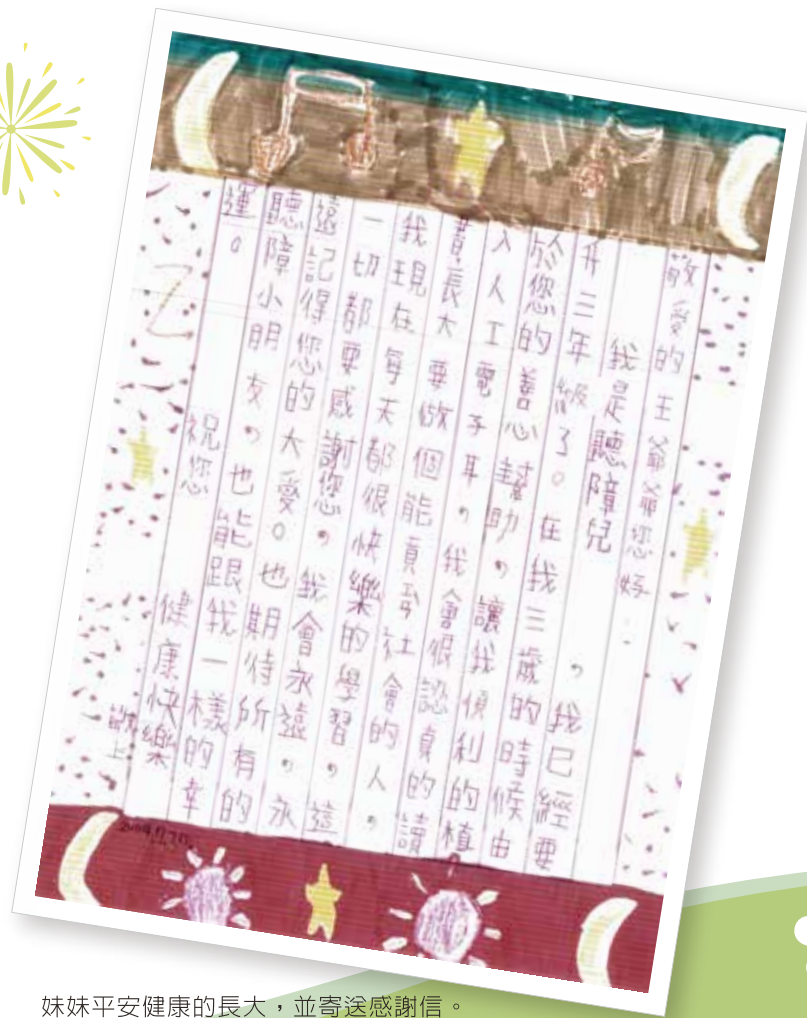 敬愛的王爺爺您好：
我是聽障兒，我已經要
升三年級了。在我三歲的時候由
於您的善心幫助，讓我順利的植
入人工電子耳，我會很認真的讀
書長大要做個能貢獻社會的人，
我現在每天都很快樂的學習，這
一切都要感謝您，我會永遠，永
遠記得您的大愛。也期待所有的
聽障小朋友，也能跟我一樣的幸
運。
祝您
健康快樂
敬上
妹妹平安健康的長大，並寄送感謝信。